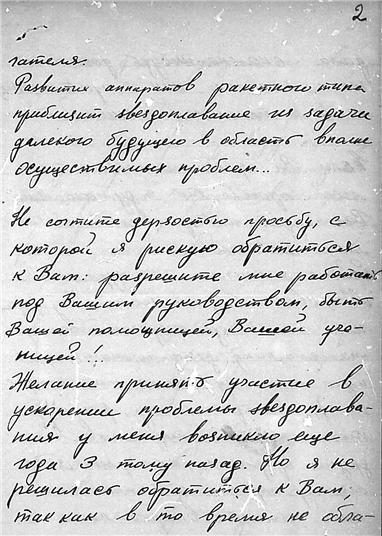 2
гателя.
Развитие аппаратов ракетного типа
приблизит звездоплавание из задачи
далекого будущего в область вполне
осуществимых проблем...
Не сочтите дерзостью просьбу, с
которой я рискую обратиться
к Вам: разрешите мне работать
под Вашим руководством, быть
Вашей помощницей, Вашей уче-
ницей!..
Желание принять участие в
ускорении проблемы звездоплава-
ния у меня возникло еще
года 3 тому назад. Но я не
решилась обратиться к Вам,
так как в то время не обла-